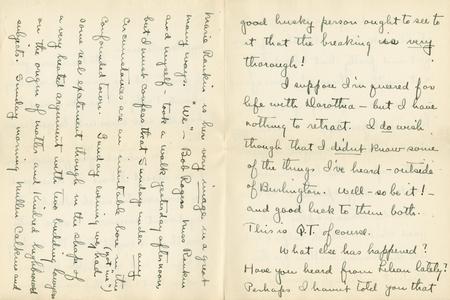 good husky person ought to see to
it that the breaking is very
thorough!
I suppose I'm queered for
life with Dorothea - but I have
nothing to retract. I do wish
though that I didn't know some
of the things I've heard - outside
of Burlington. Well - so be it! -
and good luck to them both.
This is Q.T. of course.
What else has happened?
Have you heard from Lilean lately?
Perhaps I havn't told you that
Marie Rankin is her very image in a great
many ways. "We" - Bob Rogers Miss Rankin
and myself - took a walk yesterday afternoon,
but I must confess that Sunday under any
circumstances are an inevitable bore in this
confounded town. Sunday evening we had
(not me)
some real excitement though in the shape of
a very heated argument with two budding lawyers
on the origin of matter and kindred highbrowed
subjects. Sunday morning Mullen Calkins and